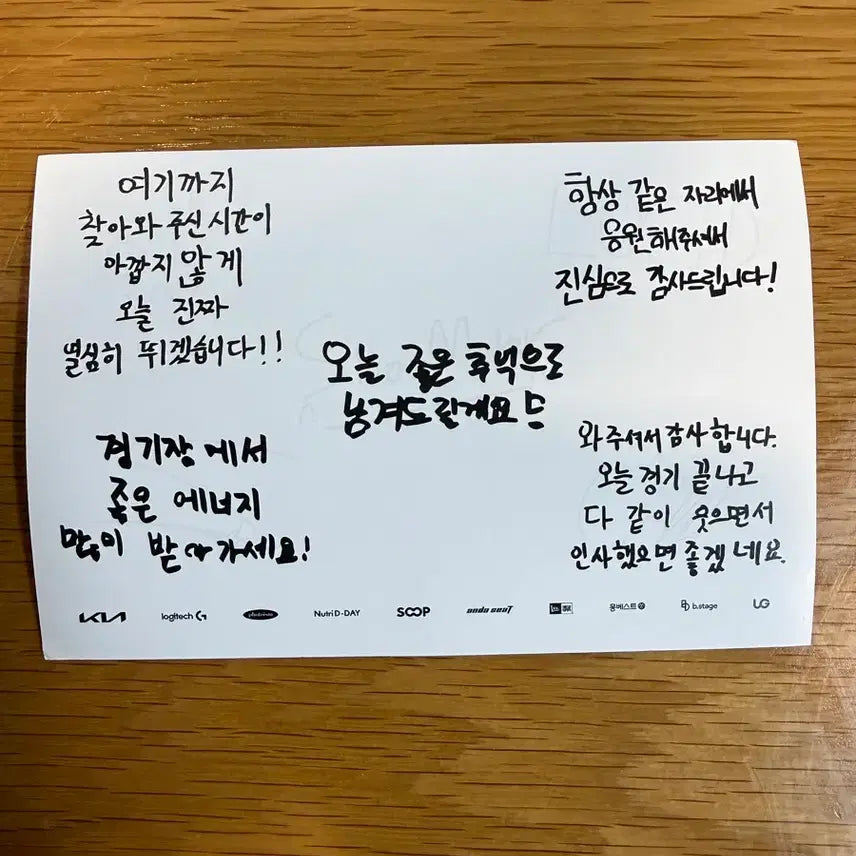 여기까지
찾아와 주신 시간이
아깝지 않게
오늘 진짜
열심히 뛰겠습니다!!
항상 같은 자리에서
응원해주셔서
진심으로 감사드립니다!
오늘 좋은 추억으로
남겨드릴게요
경기장에서
좋은 에너지
많이 받아가세요!
와주셔서 감사합니다.
오늘 경기 끝나고
다 같이 웃으면서
인사했으면 좋겠네요.
KIA
logitech G
Nutri D-DAY
SOOP
anda seaT
몽베스트
b.stage
UG